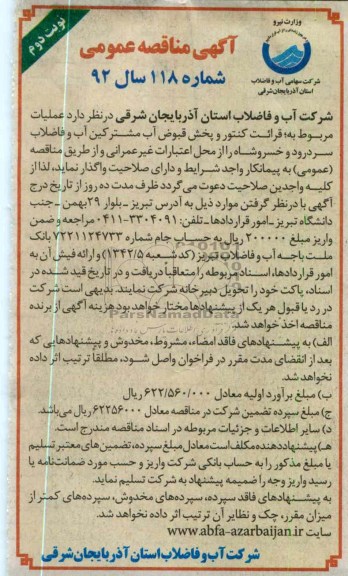 نوبت دوم
وزارت نیرو
شرکت سهامی آب و فاضلاب
استان آذربایجان شرقی
آگهی مناقصه عمومی
شماره ۱۱۸ سال ۹۲
شرکت آب و فاضلاب استان آذربایجان شرقی در نظر دارد عملیات
مربوط به؛ قرائت کنتور و پخش قبوض آب مشترکین آب و فاضلاب
سردرود و خسروشاه را از محل اعتبارات غیرعمرانی و از طریق مناقصه
(عمومی) به پیمانکار واجد شرایط و دارای صلاحیت واگذار نماید، لذا از
کلیه واجدین صلاحیت دعوت می‌گردد ظرف مدت ده روز از تاریخ درج
آگهی با در نظر گرفتن موارد ذیل به آدرس تبریز ـ بلوار ۲۹ بهمن ـ جنب
دانشگاه تبریز ـ امور قراردادها ـ تلفن: ۳۳۰۴۰۹۱-۰۴۱۱ مراجعه و ضمن
واریز مبلغ ۲۰۰۰۰۰ ریال به حساب جام شماره ۷۲۲۱۱۲۴۷۳۳ بانک
ملت باجه آب و فاضلاب تبریز (کد شعبه ۱۳۴۲/۵) و ارائه فیش آن به
امور قراردادها، اسناد مربوطه را متعاقباً دریافت و در تاریخ قید شده در
اسناد، پاکت خود را تحویل دبیرخانه شرکت نمایند. بدیهی است شرکت
در رد یا قبول هر یک از پیشنهادها مختار خواهد بود هزینه آگهی از برنده
مناقصه اخذ خواهد شد.
ParsNamadData
الف) به پیشنهادهای فاقد امضاء، مشروط، مخدوش و پیشنهادهایی که
بعد از انقضای مدت مقرر در فراخوان واصل شود، مطلقاً ترتیب اثر داده
نخواهد شد.
ب) مبلغ برآورد اولیه معادل ۶۲۲/۵۶۰/۰۰۰ ریال
ج) مبلغ سپرده تضمین شرکت در مناقصه معادل ۶۲۲۵۶۰۰۰ ریال می‌باشد.
د) سایر اطلاعات و جزئیات مربوطه در اسناد مناقصه مندرج است.
هـ) پیشنهاددهنده مکلف است معادل مبلغ سپرده، تضمین‌های معتبر تسلیم
یا مبلغ مذکور را به حساب بانکی شرکت واریز و حسب مورد ضمانت‌نامه یا
رسید واریز وجه را ضمیمه پیشنهاد به شرکت تسلیم نماید.
به پیشنهادهای فاقد سپرده، سپرده‌های مخدوش، سپرده‌های کمتر از
میزان مقرر، چک و نظایر آن ترتیب اثر داده نخواهد شد.
سایت www.abfa-azarbaijan.ir
شرکت آب و فاضلاب استان آذربایجان شرقی